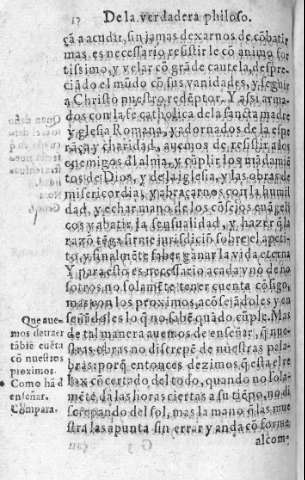 De la verdadera philoso.
çã a acudir, sin jamas dexarnos de cõbatir
mas es necessario resistirle cõ animo for
tissimo, y velar cõ grãde cautela, despre
ciãdo el mũdo cõ sus vanidades, y seguir
a Christo nuestro redẽptor. Y assi arma
dos con la fe catholica dela sancta madre
yglesia Romana, y adornados de la espe
rãça y charidad, auemos de resistir a los
enemigos ďl alma, y cũplir los mãdamiẽ
tos de Dios, y dela yglesia, y las obras de
misericordia, y abraçarnos con la humil
dad, y echar mano de los cõsejos euãgeli
cos y abatir la sensualidad, y hazer q̃ la
razõ tẽga siẽpre jurisdiciõ sobre el apeti-
to, y finalmẽte saber ganar la vida eterna
Y para esto es necessario a cada vno de no
sotros, no solamẽte tener cuenta cõsigo,
mas con los proximos, acõsejãdoles y en
señãdoles lo q̃ no sabẽ quãdo cũple. Mas
de tal manera auemos de enseñar, q̃ nue-
stras obras no discrepẽ de nuestras pala-
bras: porq̃ entonces dezimos q̃ esta el re
lox cõcertado del todo, quando no sola-
mẽte da las horas ciertas a su tiẽpo, no di
screpando del sol, mas la mano q̃ las mue
stra las apunta sin errar y anda cõ forma
alcom-
Que aue-
mos detraer
tãbiẽ cuẽta
cõ nuestros
proximos.
Como hã ď
enseñar.
Cõpara.